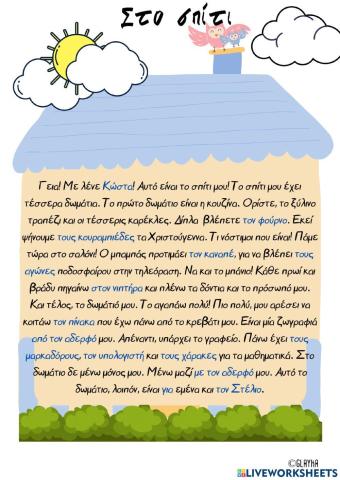 Στο σπίτι
Γεια! Με λένε Κώστα! Αυτό είναι το σπίτι μου! Το σπίτι μου έχει
τέσσερα δωμάτια. Το πρώτο δωμάτιο είναι η κουζίνα. Ορίστε, το ξύλινο
τραπέζι και οι τέσσερις καρέκλες. Δίπλα βλέπετε τον φούρνο. Εκεί
ψήνουμε τους κουραμπιέδες τα Χριστούγεννα. Τι νόστιμοι που είναι! Πάμε
τώρα στο σαλόνι! Ο μπαμπάς προτιμάει τον καναπέ, για να βλέπει τους
αγώνες ποδοσφαίρου στην τηλεόραση. Να και το μπάνιο! Κάθε πρωί και
βράδυ πηγαίνω στον νιπτήρα και πλένω τα δόντια και το πρόσωπό μου.
Και τέλος, το δωμάτιό μου. Το αγαπάω πολύ! Πιο πολύ, μου αρέσει να
κοιτάω τον πίνακα που έχω πάνω από το κρεβάτι μου. Είναι μία ζωγραφιά
από τον αδερφό μου. Απέναντι, υπάρχει το γραφείο. Πάνω έχει τους
μαρκαδόρους, τον υπολογιστή και τους χάρακες για τα μαθηματικά. Στο
δωμάτιο δε μένω μόνος μου. Μένω μαζί με τον αδερφό μου. Αυτό το
δωμάτιο, λοιπόν, είναι για εμένα και τον Στέλιο.
©GLRYKA
LIVEWORKSHEETS